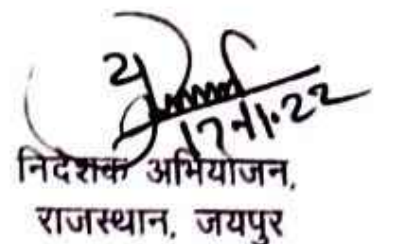 17.11.22
निदेशक अभियोजन,
राजस्थान, जयपुर